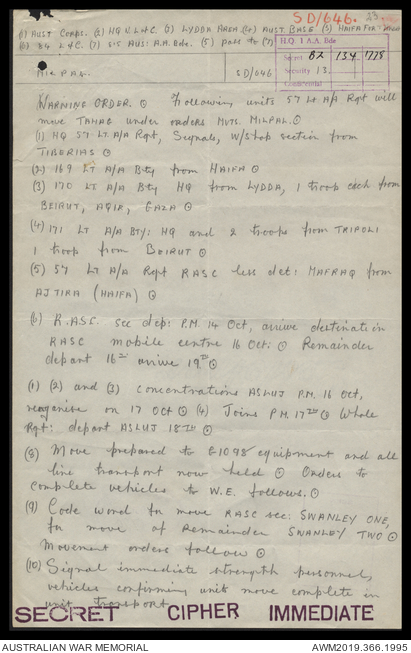 SD/646. 23
(1) AUST CORPS. (2) HQ U.L of C. (3) LYDDA AREA (4) AUST BASE (5) HAIFA FOR
(6) 84 L of C. (7) S·S AUS: A.A. Bde. (5) pass to (7)
H.Q. 1 A.A. Bde
Secret B2 134 1778
Security 13
Confidential
Mic P.A.G.
SD/046
WARNING ORDER ⊙ Following units 57 Lt. A/A Rgt will
move TAHAG under orders MVTS. MILPAL. ⊙
(1) HQ 57 LT. A/A Rgt, Signals, W/Shop section from
TIBERIAS ⊙
(2) 169 LT A/A Bty from HAIFA ⊙
(3) 170 LT A/A Bty HQ from LYDDA, 1 troop each from
BEIRUT, AQIR, GAZA ⊙
(4) 171 Lt A/A BTY: HQ and 2 troops from TRIPOLI
1 troop from BEIRUT ⊙
(5) 57 Lt A/A Rgt RASC less det: MAFRAQ from
AJ TIRA (HAIFA) ⊙
(6) R.A.S.C. sec dep: P.M. 14 Oct, arrive destination
RASC mobile centre 16 Oct: ⊙ Remainder
depart 16th arrive 19th ⊙
(1) (2) and (3) concentrations ASLUJ P.M. 16 Oct,
reorganise on 17 Oct ⊙ (4) Joins P.M. 17th ⊙ Whole
Rgt: depart ASLUJ 18th ⊙
(8) Move prepared to G1098 equipment and all
line transport now held ⊙ Orders to
complete vehicles to W.E. follows. ⊙
(9) Code word for move RASC sec: SWANLEY ONE,
for move of Remainder SWANLEY TWO ⊙
Movement orders follow ⊙
(10) Signal immediate strength personnel,
vehicles confirming unit move complete in
unit transport
SECRET CIPHER IMMEDIATE
AUSTRALIAN WAR MEMORIAL
AWM2019.366.1995